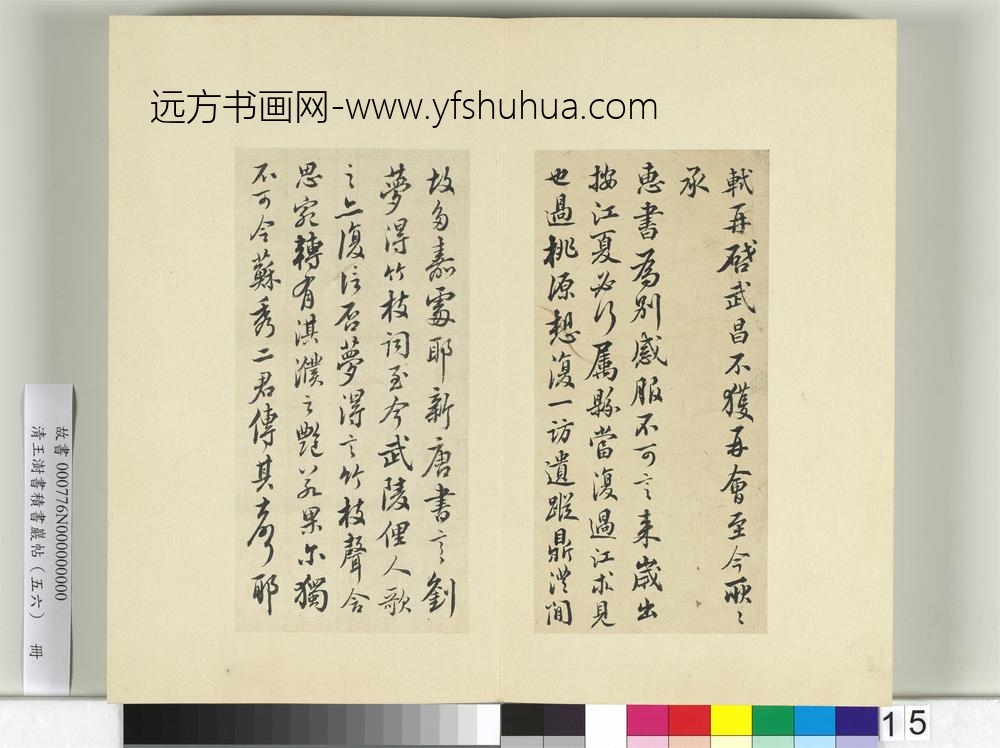 远方书画网-www.yfshuhua.com
軾再啓武昌不獲再會至今耿〻
承
惠書為別感服不可言来歲出
按江夏必行属縣當復過江求見
也過桃源想復一訪遺蹤鼎澧間
故多嘉處耶新唐書言劉
夢得竹枝詞至今武陵俚人歌
之亦復信否夢得言竹枝聲含
思宛轉有淇濮之艷若果尔獨
不可令蘇秀二君傳其聲耶
故書 000776N000000000
清王澍書積書巖帖（五六） 冊
15